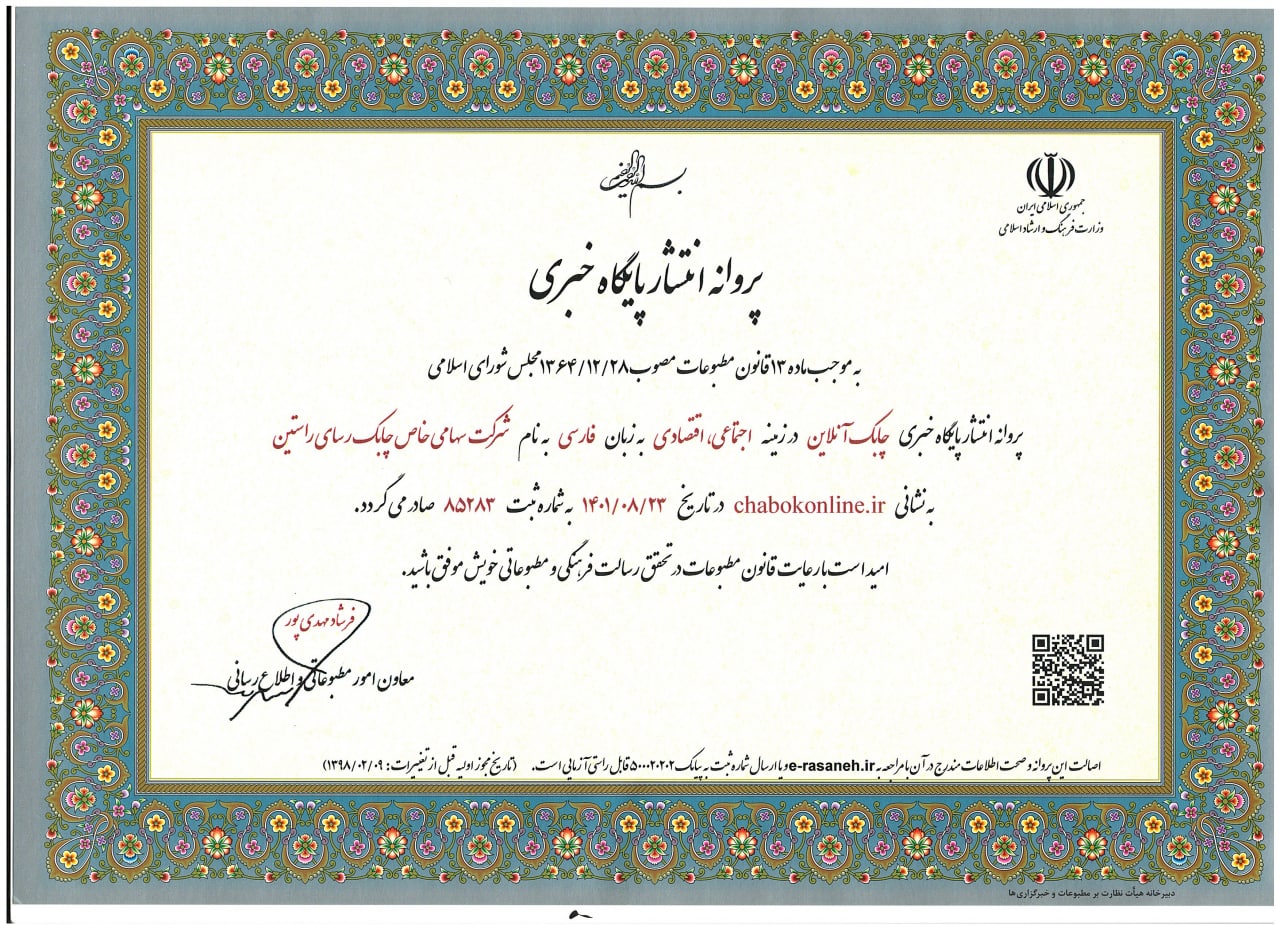 بسم الله الرحمن الرحیم
جمهوری اسلامی ایران
وزارت فرهنگ و ارشاد اسلامی
پروانه انتشار پایگاه خبری
به موجب ماده ۱۳ قانون مطبوعات مصوب ۱۳۶۴/۱۲/۲۸ مجلس شورای اسلامی
پروانه انتشار پایگاه خبری چابک آنلاین در زمینه اجتماعی، اقتصادی به زبان فارسی به نام شرکت سهامی خاص چابک رسای راستین
به نشانی chabokonline.ir در تاریخ ۱۴۰۱/۰۸/۲۳ به شماره ثبت ۸۵۲۸۳ صادر می گردد.
امید است با رعایت قانون مطبوعات در تحقق رسالت فرهنگی و مطبوعاتی خویش موفق باشید.
فرشاد مهدی پور
معاون امور مطبوعاتی و اطلاع رسانی
اصالت این پروانه و صحت اطلاعات مندرج در آن با مراجعه به e-rasaneh.ir و یا ارسال شماره ثبت به پیامک ۵۰۰۰۲۰۲۰۲ قابل راستی آزمایی است. (تاریخ مجوز اولیه قبل از تغییرات: ۱۳۹۸/۰۲/۰۹)
دبیرخانه هیأت نظارت بر مطبوعات و خبرگزاری‌ها